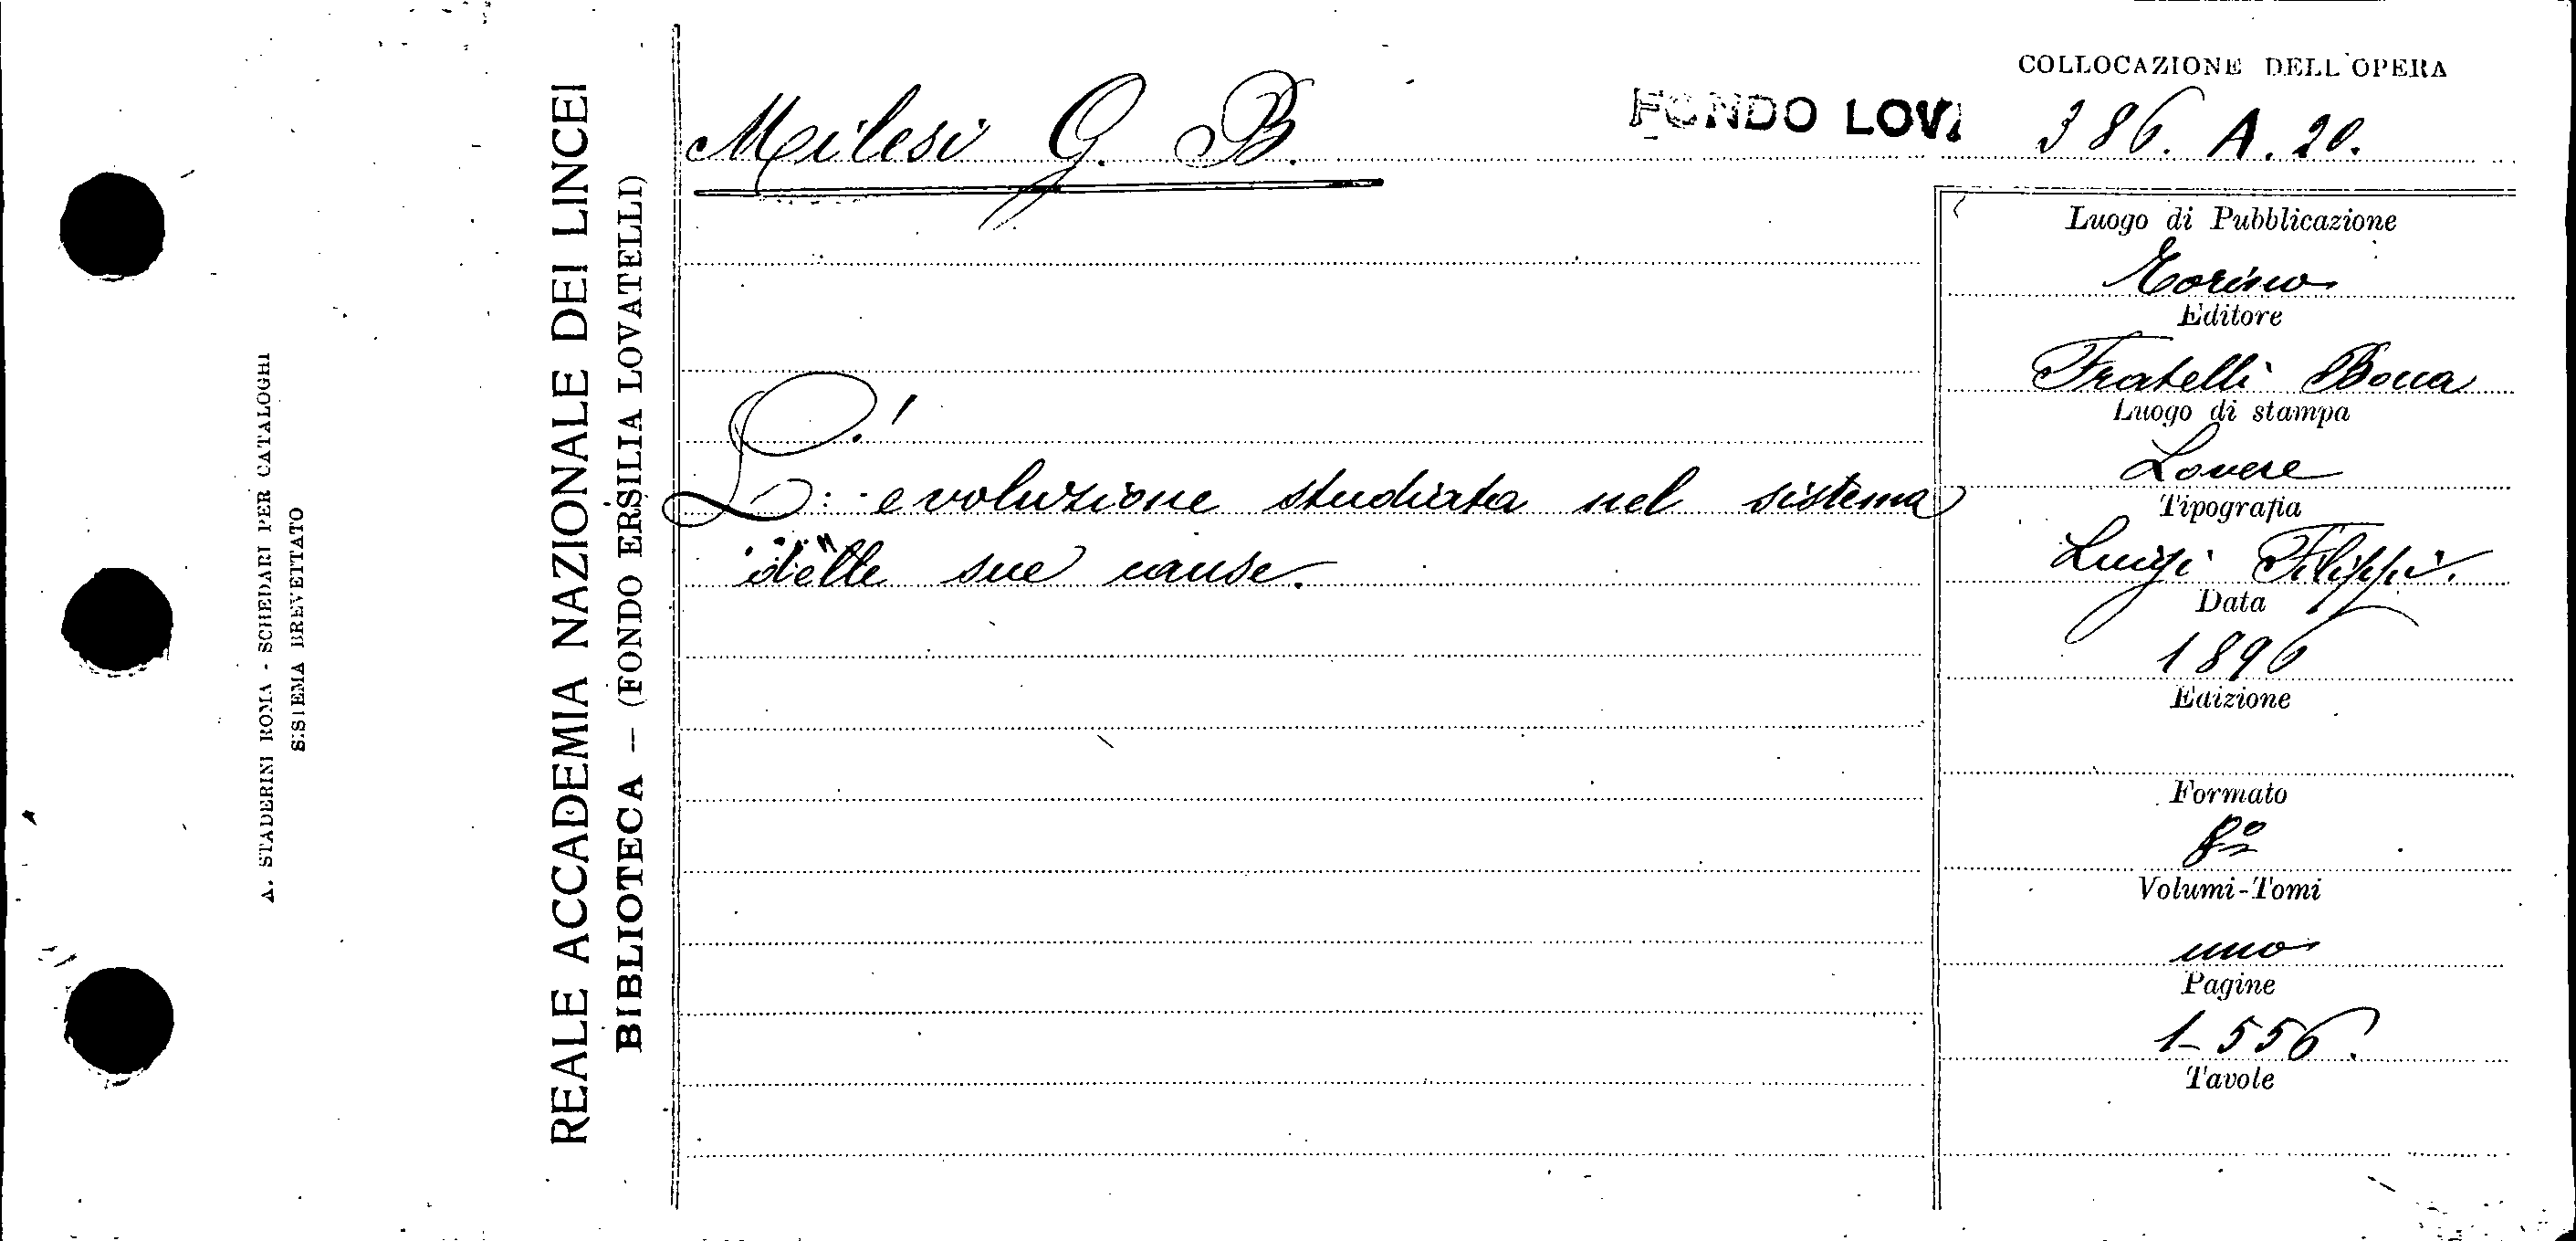 A. STADERINI ROMA - SCHEDARI PER CATALOGHI
SISTEMA BREVETTATO
REALE ACCADEMIA NAZIONALE DEI LINCEI
BIBLIOTECA — (FONDO ERSILIA LOVATELLI)
Milesi G. B.
FONDO LOV
COLLOCAZIONE DELL'OPERA
386. A. 20.
L'evoluzione studiata nel sistema
delle sue cause.
Luogo di Pubblicazione
Torino
Editore
Fratelli Bocca
Luogo di stampa
Lovere
Tipografia
Luigi Filippi.
Data
1896
Edizione
Formato
8º
Volumi-Tomi
uno
Pagine
1-556.
Tavole